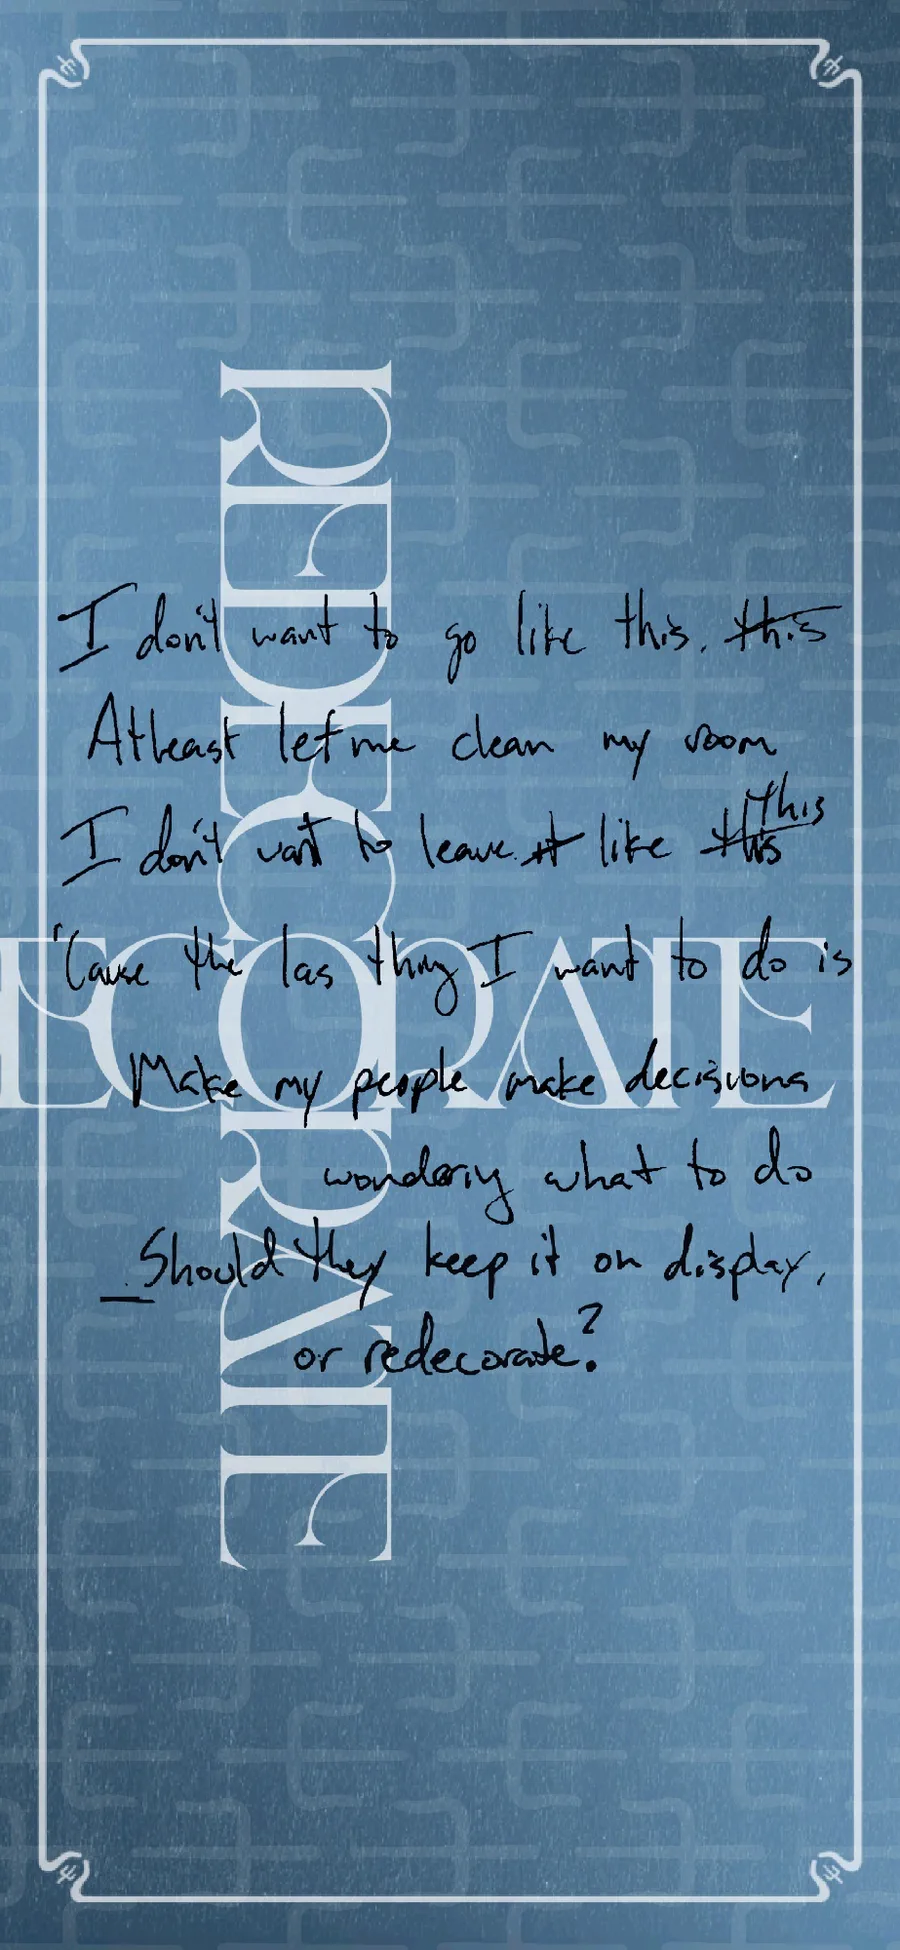 REDECORATE
I don't want to go like this. this
Atleast let me clean my room
I don't want to leave it like this this
'Cause the las thing I want to do is
ECORATE
Make my people make decisions
wondering what to do
Should they keep it on display,
or redecorate?